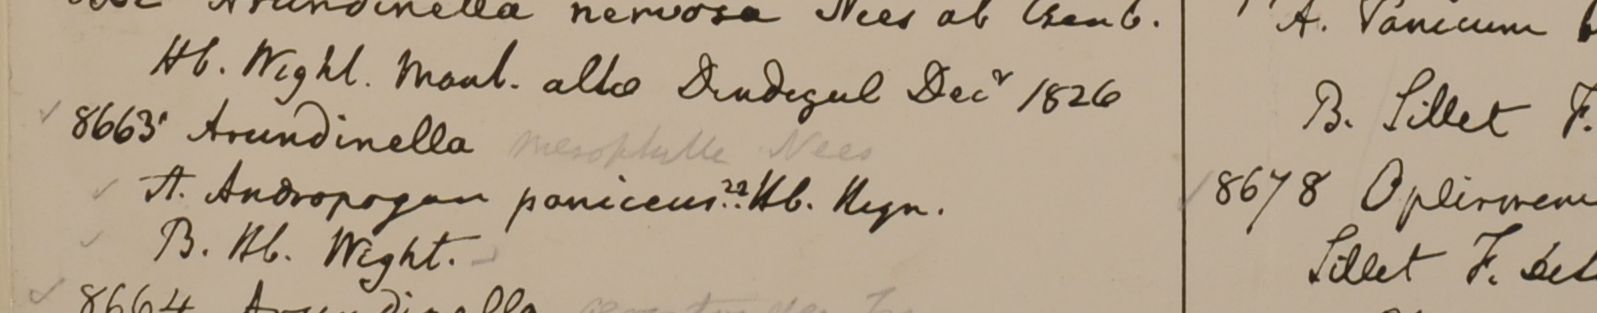 Arundinella nervosa Nees ab Esenb.
Hb. Wight. Mont. alto Dindegul Decr 1826
8663 Arundinella mesophylla Nees
A. Andropogon paniceus?? Hb. Heyn.
B. Hb. Wight.
8664 Arundinella
A. Panicum
B. Sillet F.
8678 Oplismen
Sillet F. de